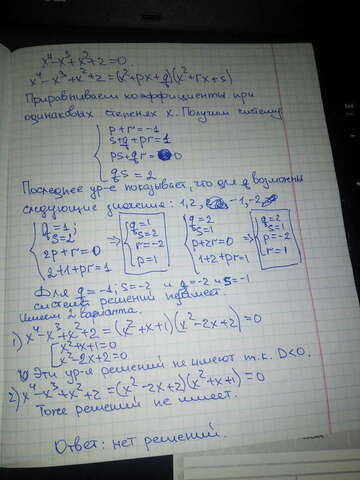 x⁴-x³+x²+2=0.
x⁴-x³+x²+2=(x²+px+q)(x²+rx+s)
Приравниваем коэффициенты при
одинаковых степенях x. Получим систему
p+r=-1
s+q+pr=1
ps+qr=0
qs=2
Последнее ур-е показывает, что для q возможны
следующие значения: 1,2,-1,-2
q=1; s=2 2p+r=0 2+1+pr=1 => q=1 s=2 r=-2 p=1
q=2 s=1 p+2r=0 1+2+pr=1 => q=2 s=1 p=-2 r=1
Для q=-1; s=-2 и q=-2 и s=-1
система решений не имеет.
Имеем 2 варианта.
1) x⁴-x³+x²+2=(x²+x+1)(x²-2x+2)=0
x²+x+1=0
x²-2x+2=0
Эти ур-я решений не имеют т.к. D<0.
2) x⁴-x³+x²+2=(x²-2x+2)(x²+x+1)=0
Тоже решений не имеет.
Ответ: нет решений.